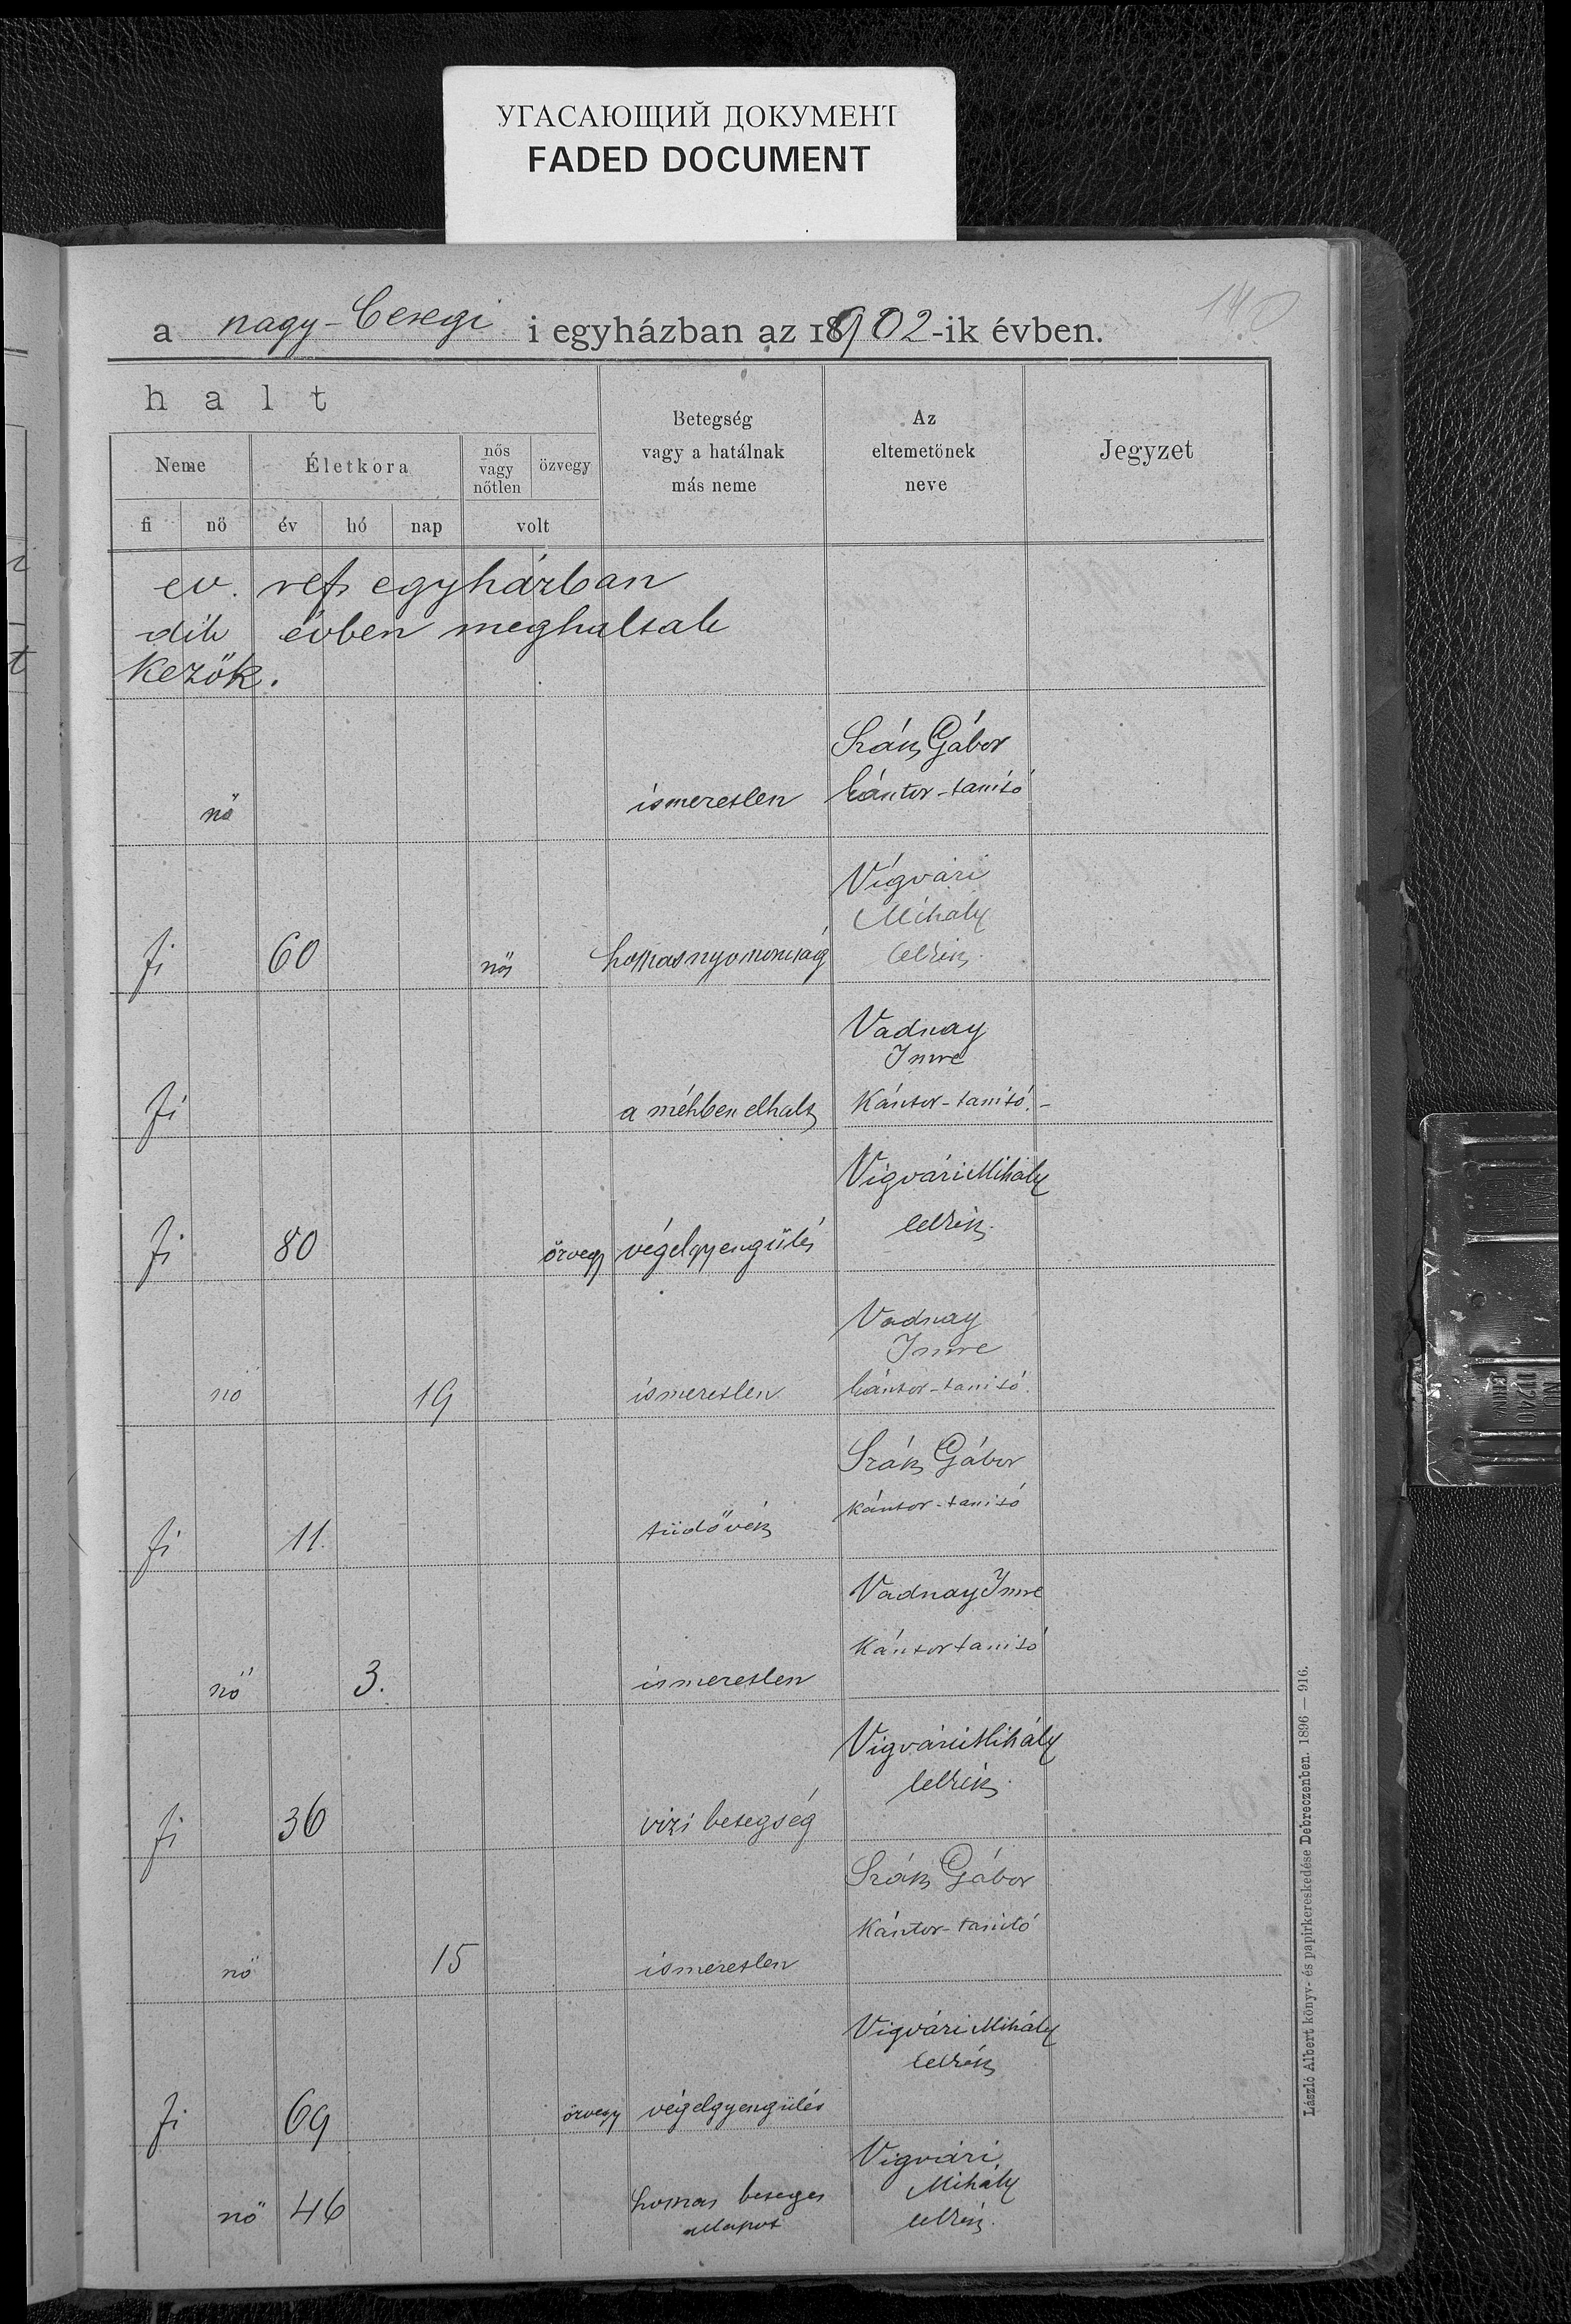 УГАСАЮЩИЙ ДОКУМЕНТ
FADED DOCUMENT
140
a nagy-Cseregi i egyházban az 18902-ik évben.
halt
Neme
Életkora
nős vagy nőtlen
özvegy
Betegség vagy a hatálnak más neme
Az eltemetőnek neve
Jegyzet
fi nő év hó nap volt
ev. ref. egyházban
dik évben meghaltak
kezők.
Szák Gábor
nő ismeretlen kántor-tanító
Vígvári
Mihály
fi 60 nős hosszas nyomorúság lelkész
Vadnay
Imre
fi a méhben elhalt Kántor-tanító.-
Vígvári Mihály
fi 80 özvegy végelgyengülés lelkész
Vadnay
Imre
nő 19 ismeretlen kántor-tanító.
Szák Gábor
fi 11. tüdővész kántor-tanító
Vadnay Imre
nő 3. ismeretlen Kántor tanító
Vigvári Mihály
fi 36 vizi betegség lelkész
Szák Gábor
nő 15 ismeretlen Kántor-tanító
Vigvári Mihály
fi 69 özvegy végelgyengülés lelkész
Vigvári
Mihály
nő 46 hosszas beteges állapot lelkész
László Albert könyv- és papirkereskedése Debreczenben. 1896 — 916.